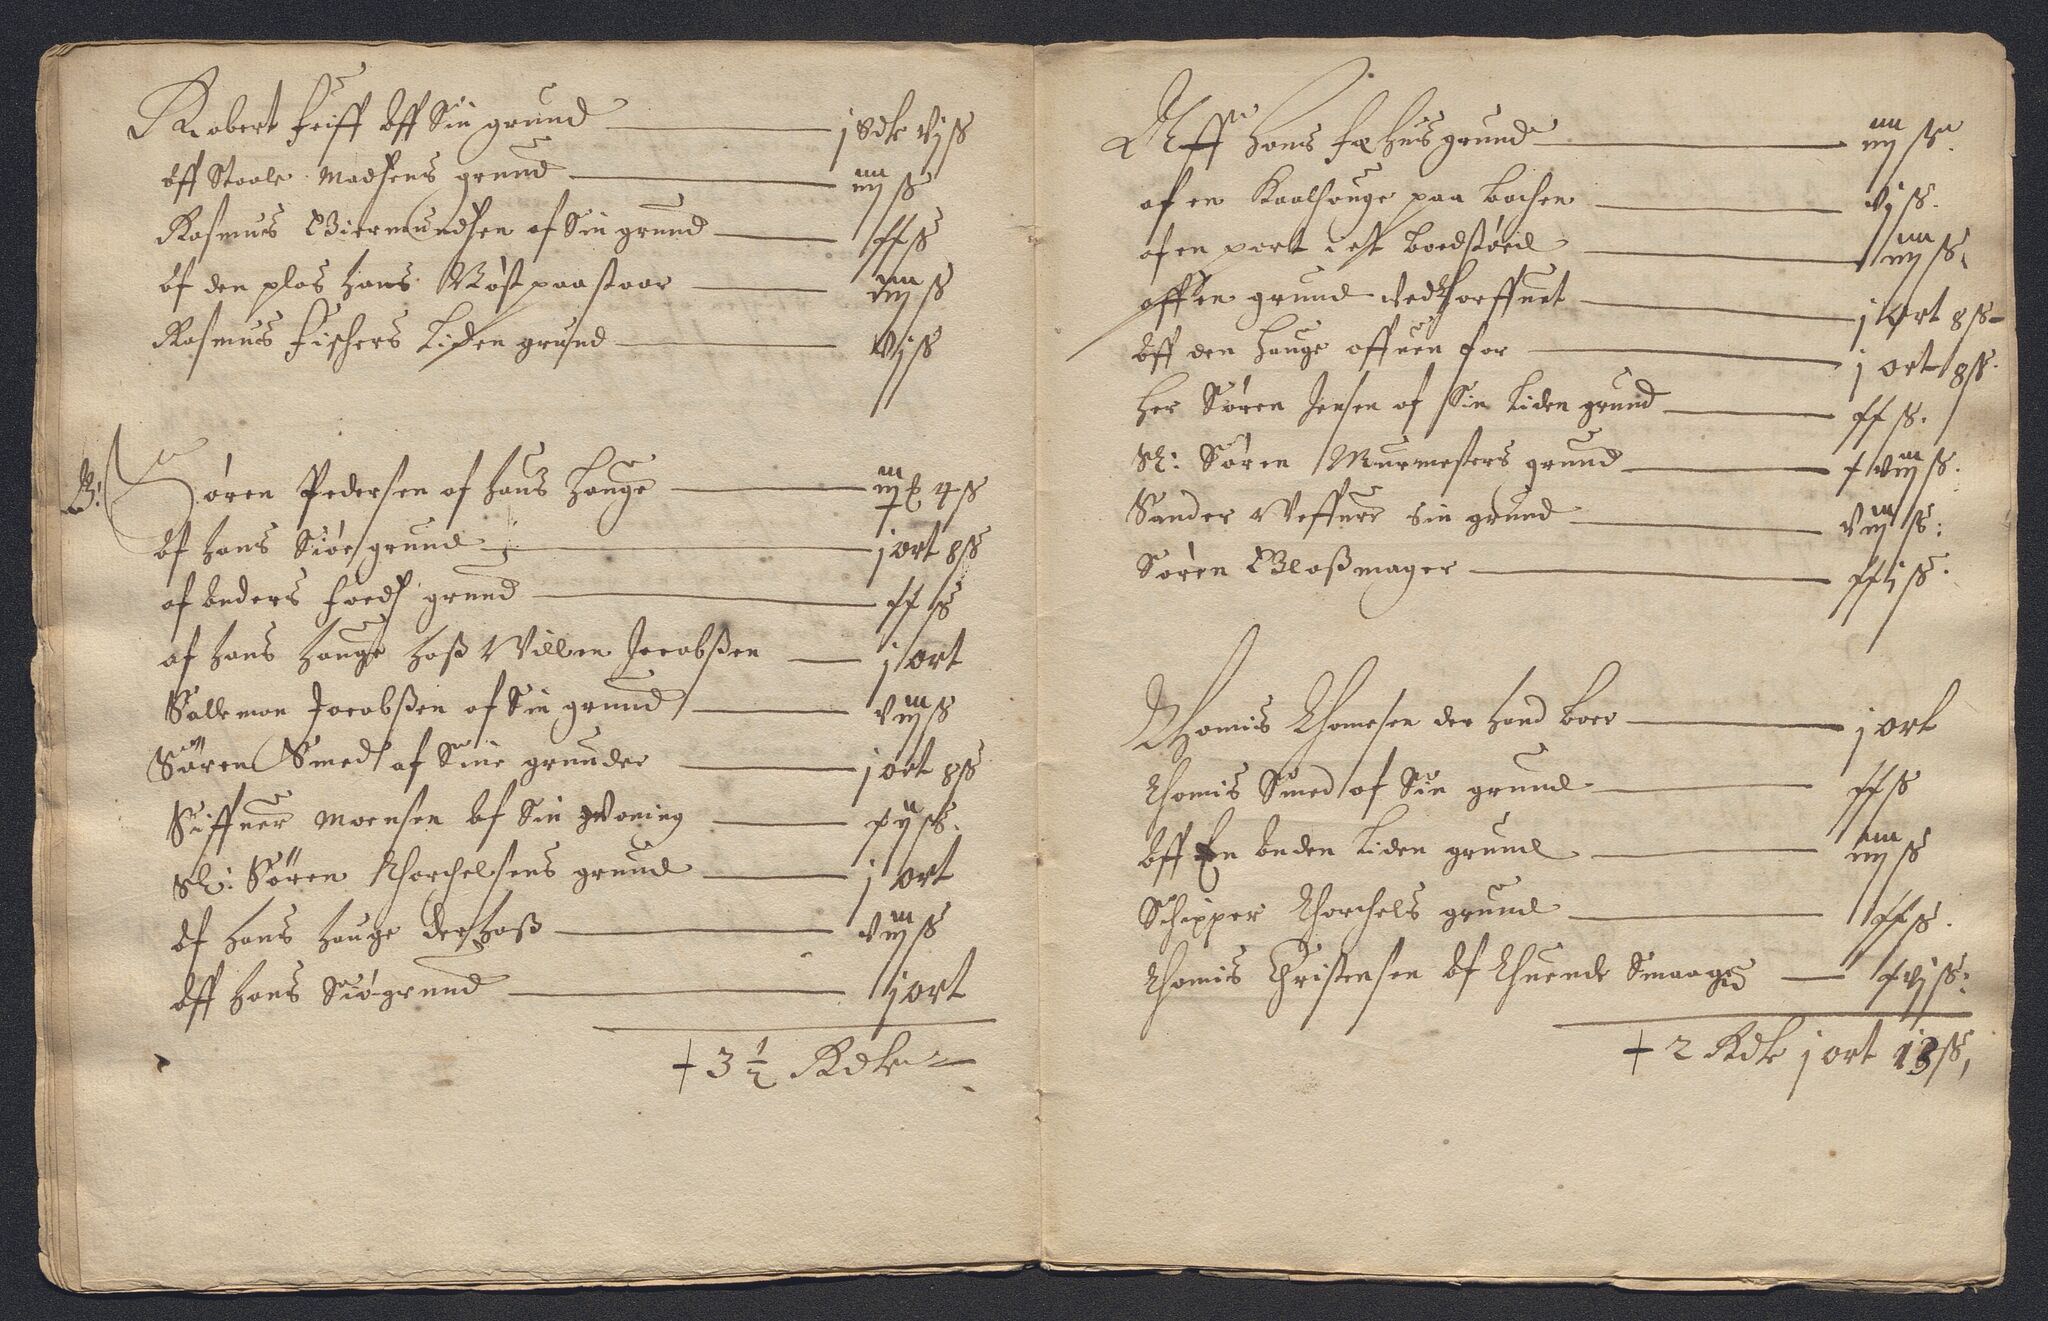 Robert Feiff Aff Sin grund — j Rdlr vj ß
Aff Staale Madsens grund — iiij ß
Rasmus Giermundsen af Sin grund — xx ß
Af den plas Hans Røst paastaar — ß
Rasmus Fischers Liden grund — vj ß
Søren Pedersen af Hans Hauge — iij 4 ß
Af Hans Siøe grund — j ort 8 ß
af grund — xx ß
af Hans Hauge Hoß Willem Jacobßen — j ort
Sallemon Jacobßen af Sin grund — viij ß
Søren Smed af Sine grunder — j ort 8 ß
Siffuer Moensen Af Sin Woning — xij ß
Sl: Søren Thorchelsens grund — j ort
Af Hans Hauge der Hoß — viij ß
Aff Hans Siø grund — j ort
+ 3 1/2 Rdlr
Aff Hans Fæhus grund — iiij ß
af en Kaalhauge paa Bachen — vj ß
af en port Boedstøed — iiij ß
aff en grund ved — j ort 8 ß
Aff den Hauge offuen for — j ort 8 ß
Her Søren Jensen af Sin Liden grund — xx ß
Sl: Søren Murmesters grund — xviij ß
Sander Weffuer sin grund — viij ß
Søren Glaßmager — ß
Thomis Thomesen der Hand boer — j ort
Thomis Smed af Sin grund — xx ß
Aff En Anden Liden grund — iiij ß
Schipper Thorchels grund — xx ß
Thomis Christensen Af Thuende — xvj ß
+ 2 Rdlr j ort 13 ß